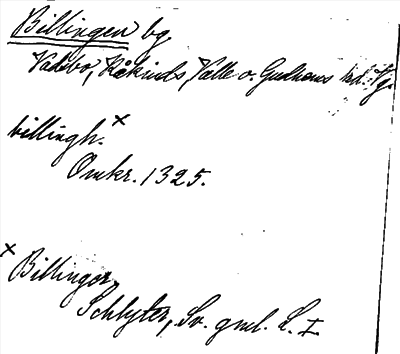 Billingen bg.
Valebo, Kåkinds, Valle o. Gudhems hd. Vg.
billingh. x
Omkr. 1325.
x Billinger,
Schlyter, Sv. gml. L. I.